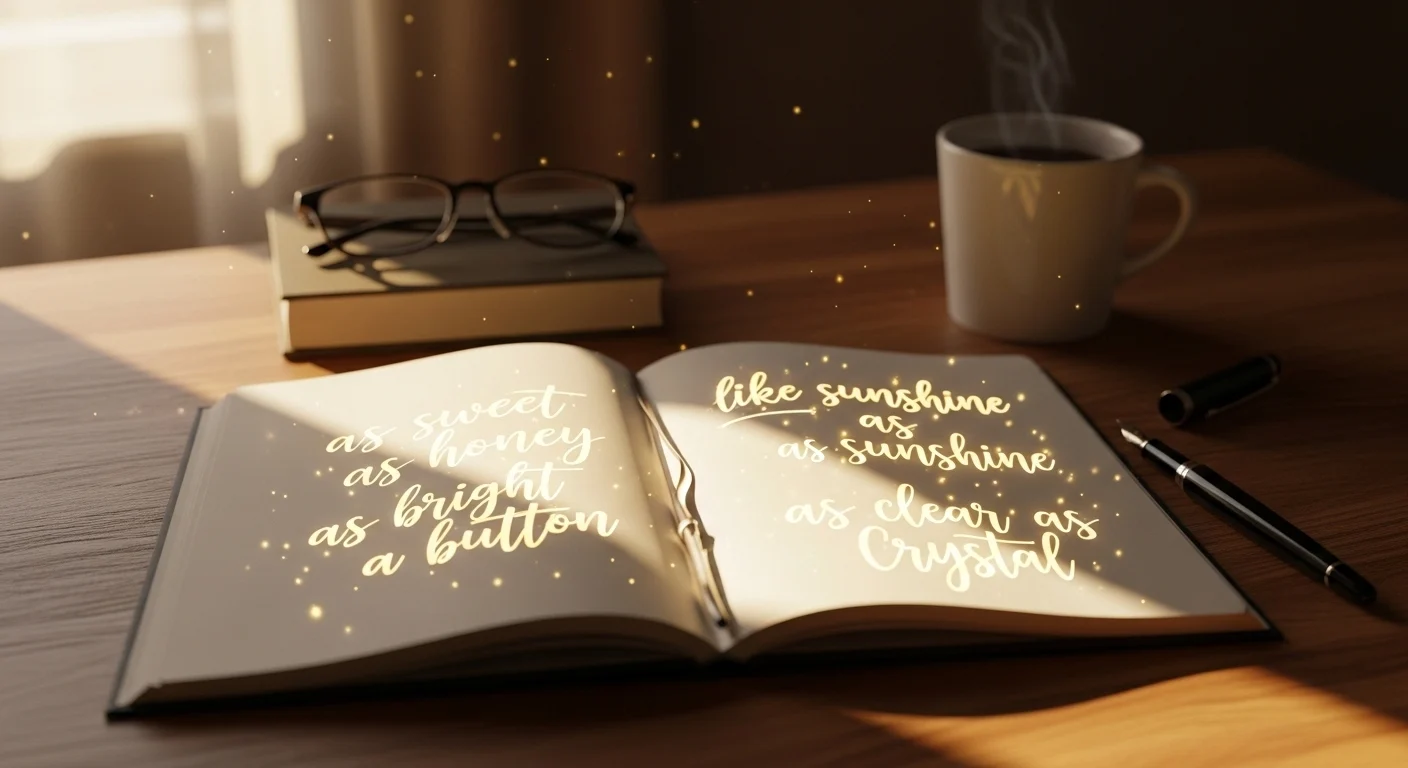 as sweet
as honey
as bright
as a button
like sunshine
as
as sunshine
as clear as
Crystal